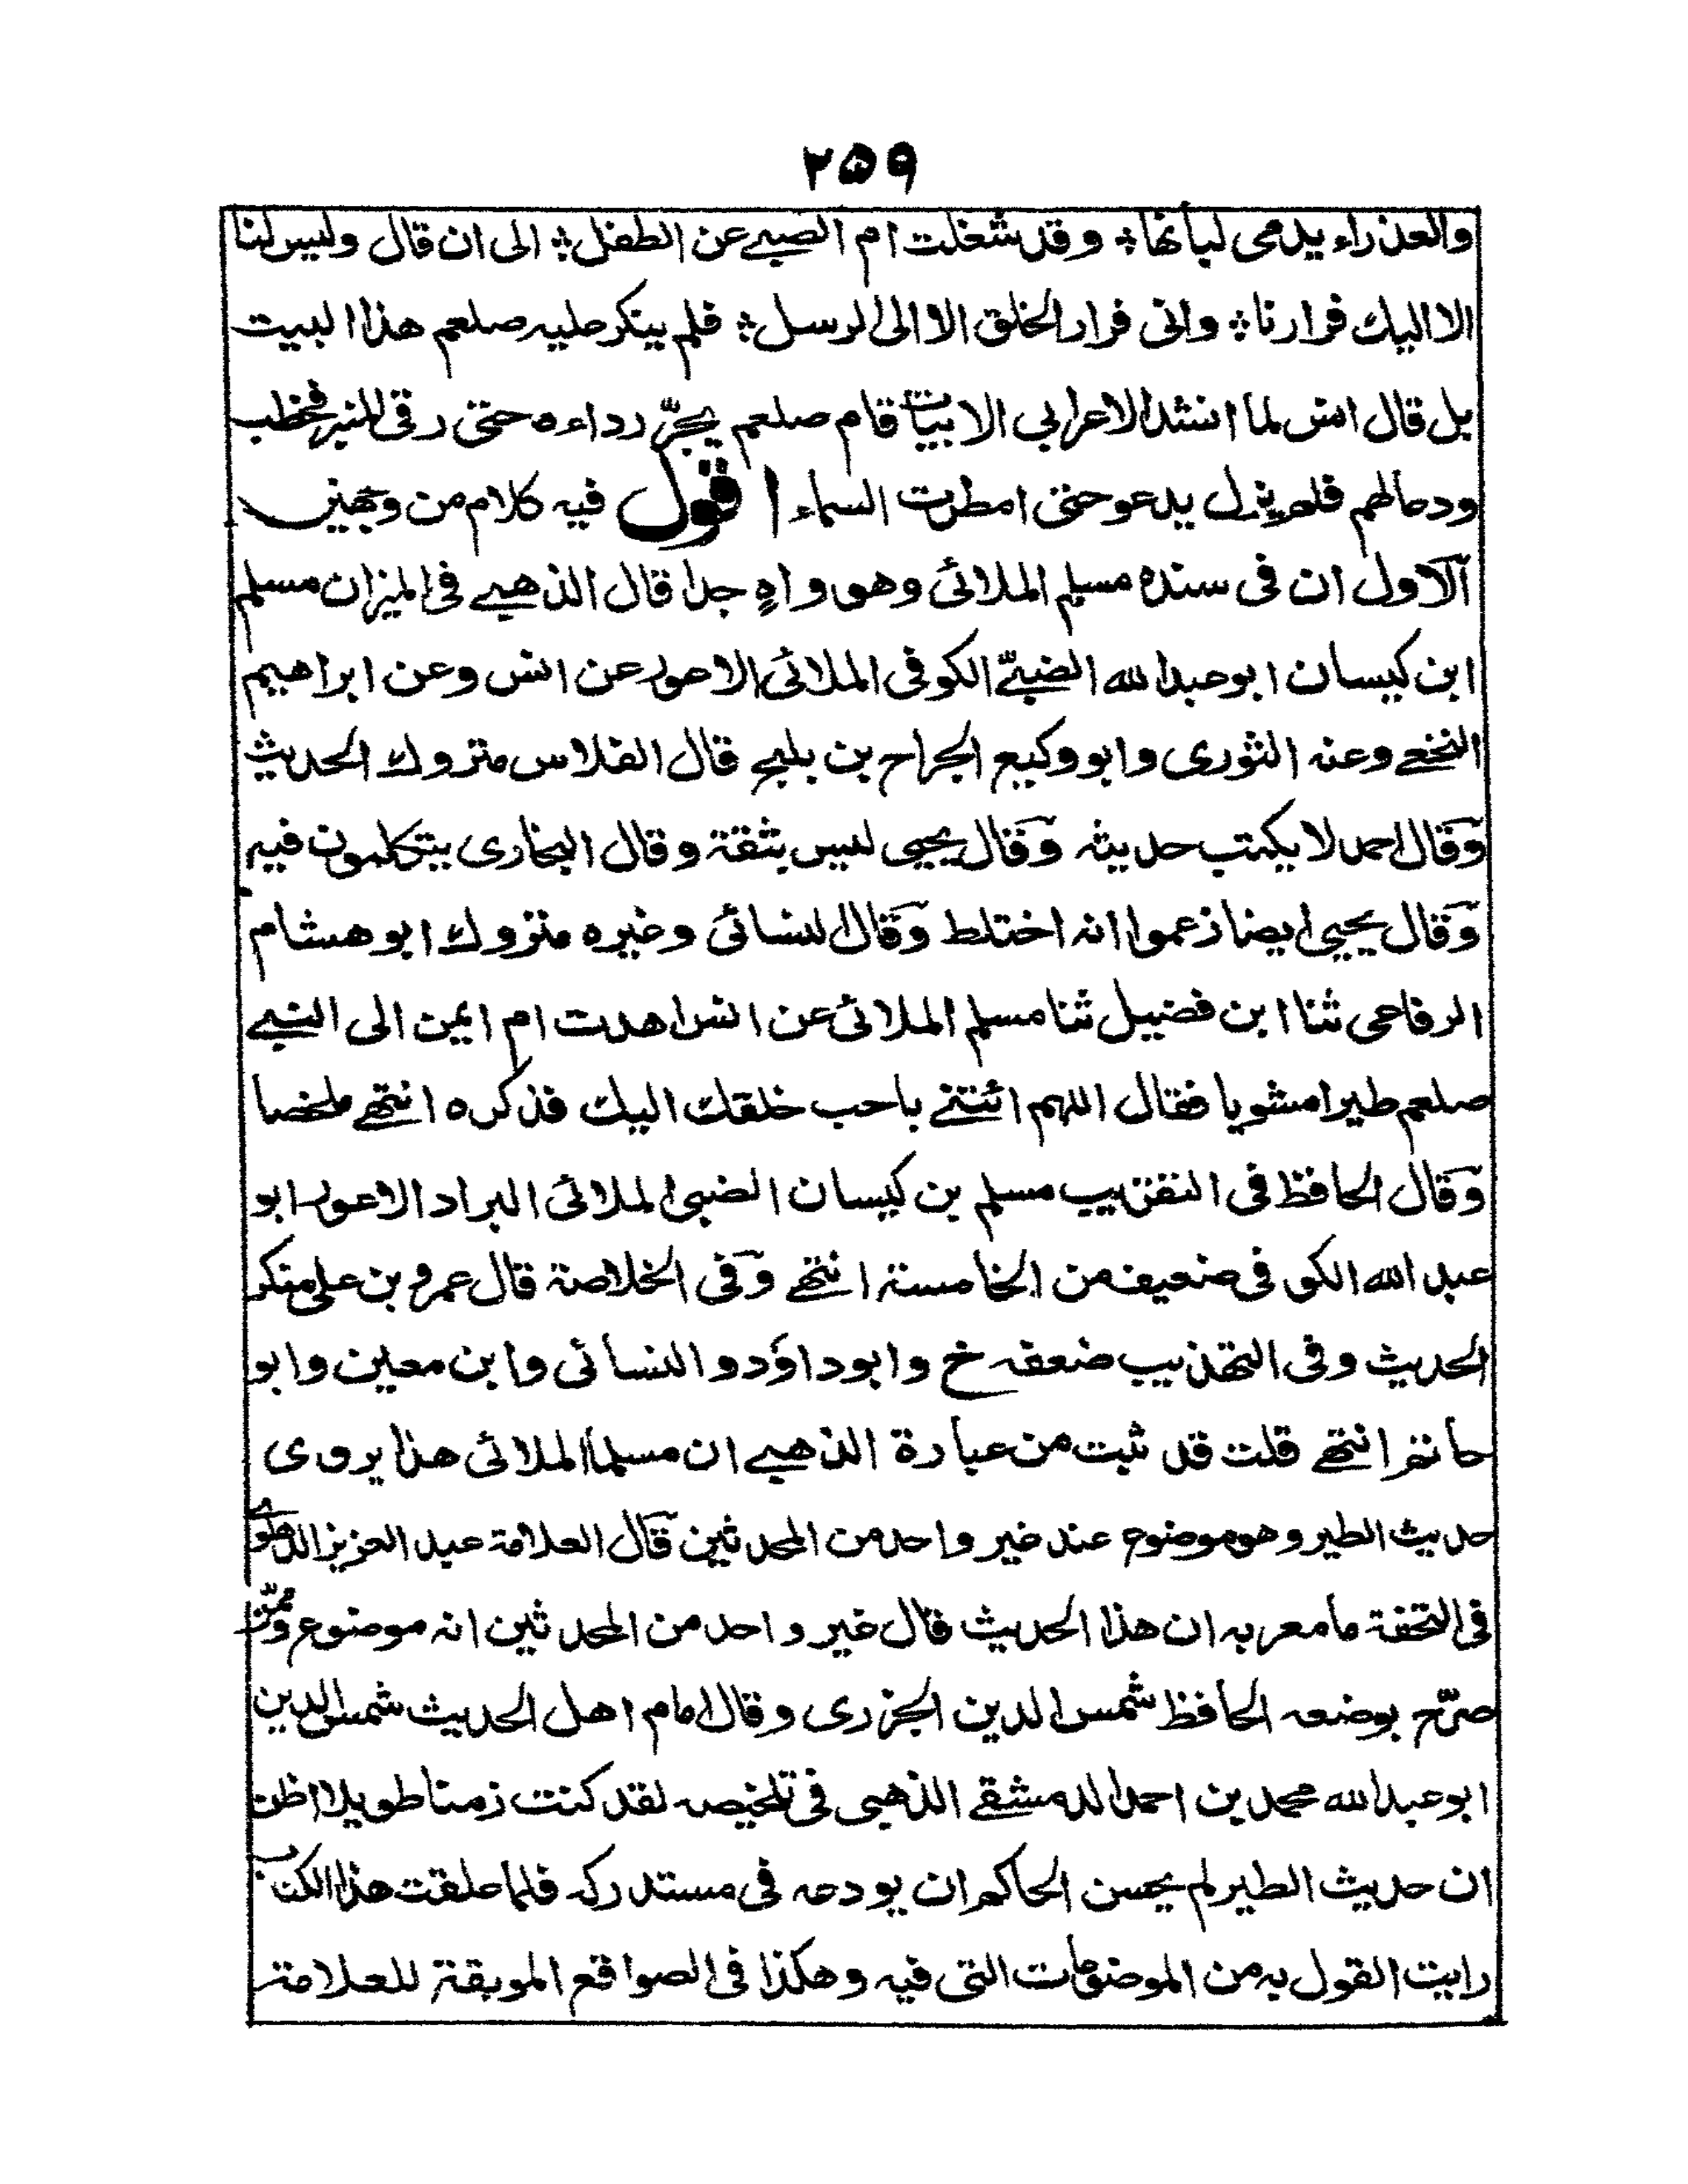 ٢٥٩
والعذراء يدمى لبانها ؞ وقد شغلت ام الصبى عن الطفل ؞ الى ان قال وليس لنا
الا اليك فرارنا ؞ وانى فرار الخلق الا الى الرسل ؞ فلم ينكر عليه صلعم هذا البيت
بل قال انس لما انشد الاعرابى الابيات قام صلعم يجرّ رداءه حتى رقى المنبر فخطب
ودعا لهم فلم يزل يدعو حتى امطرت السماء اقول فيه كلام من وجهين
الاول ان فى سنده مسلم الملائى وهو واهٍ جدا قال الذهبى فى الميزان مسلم
ابن كيسان ابو عبد الله الضبىّ الكوفى الملائى الاعور عن انس وعن ابراهيم
النخعى وعنه الثورى وابو وكيع الجراح بن مليح قال الفلاس متروك الحديث
وقال احمد لا يكتب حديثه وقال يحيى ليس بثقة وقال البخارى يتكلمون فيه
وقال يحيى ايضا زعموا انه اختلط وقال النسائى وغيره متروك ابو هشام
الرفاعى ثنا ابن فضيل ثنا مسلم الملائى عن انس اهدت ام ايمن الى النبى
صلعم طيرا مشويا فقال اللهم ائتنى باحب خلقك اليك فذكره انتهى ملخصا
وقال الحافظ فى التقريب مسلم بن كيسان الضبى الملائى البراد الاعور ابو
عبد الله الكوفى ضعيف من الخامسة انتهى وفى الخلاصة قال عمرو بن على منكر
الحديث وفى التهذيب ضعفه خ وابو داؤد والنسائى وابن معين وابو
حاتم انتهى قلت قد ثبت من عبارة الذهبى ان مسلما الملائى هذا يروى
حديث الطير وهو موضوع عند غير واحد من المحدثين قال العلامة عبد العزيز الدهلوى
فى التحفة ما معربه ان هذا الحديث قال غير واحد من المحدثين انه موضوع وممن
صرّح بوضعه الحافظ شمس الدين الجزرى وقال امام اهل الحديث شمس الدين
ابو عبد الله محمد بن احمد الدمشقى الذهبى فى تلخيصه لقد كنت زمنا طويلا اظن
ان حديث الطير لم يحسن الحاكم ان يودعه فى مستدركه فلما علقت هذا الكتاب
رايت القول به من الموضوعات التى فيه وهكذا فى الصواقع الموبقة للعلامة